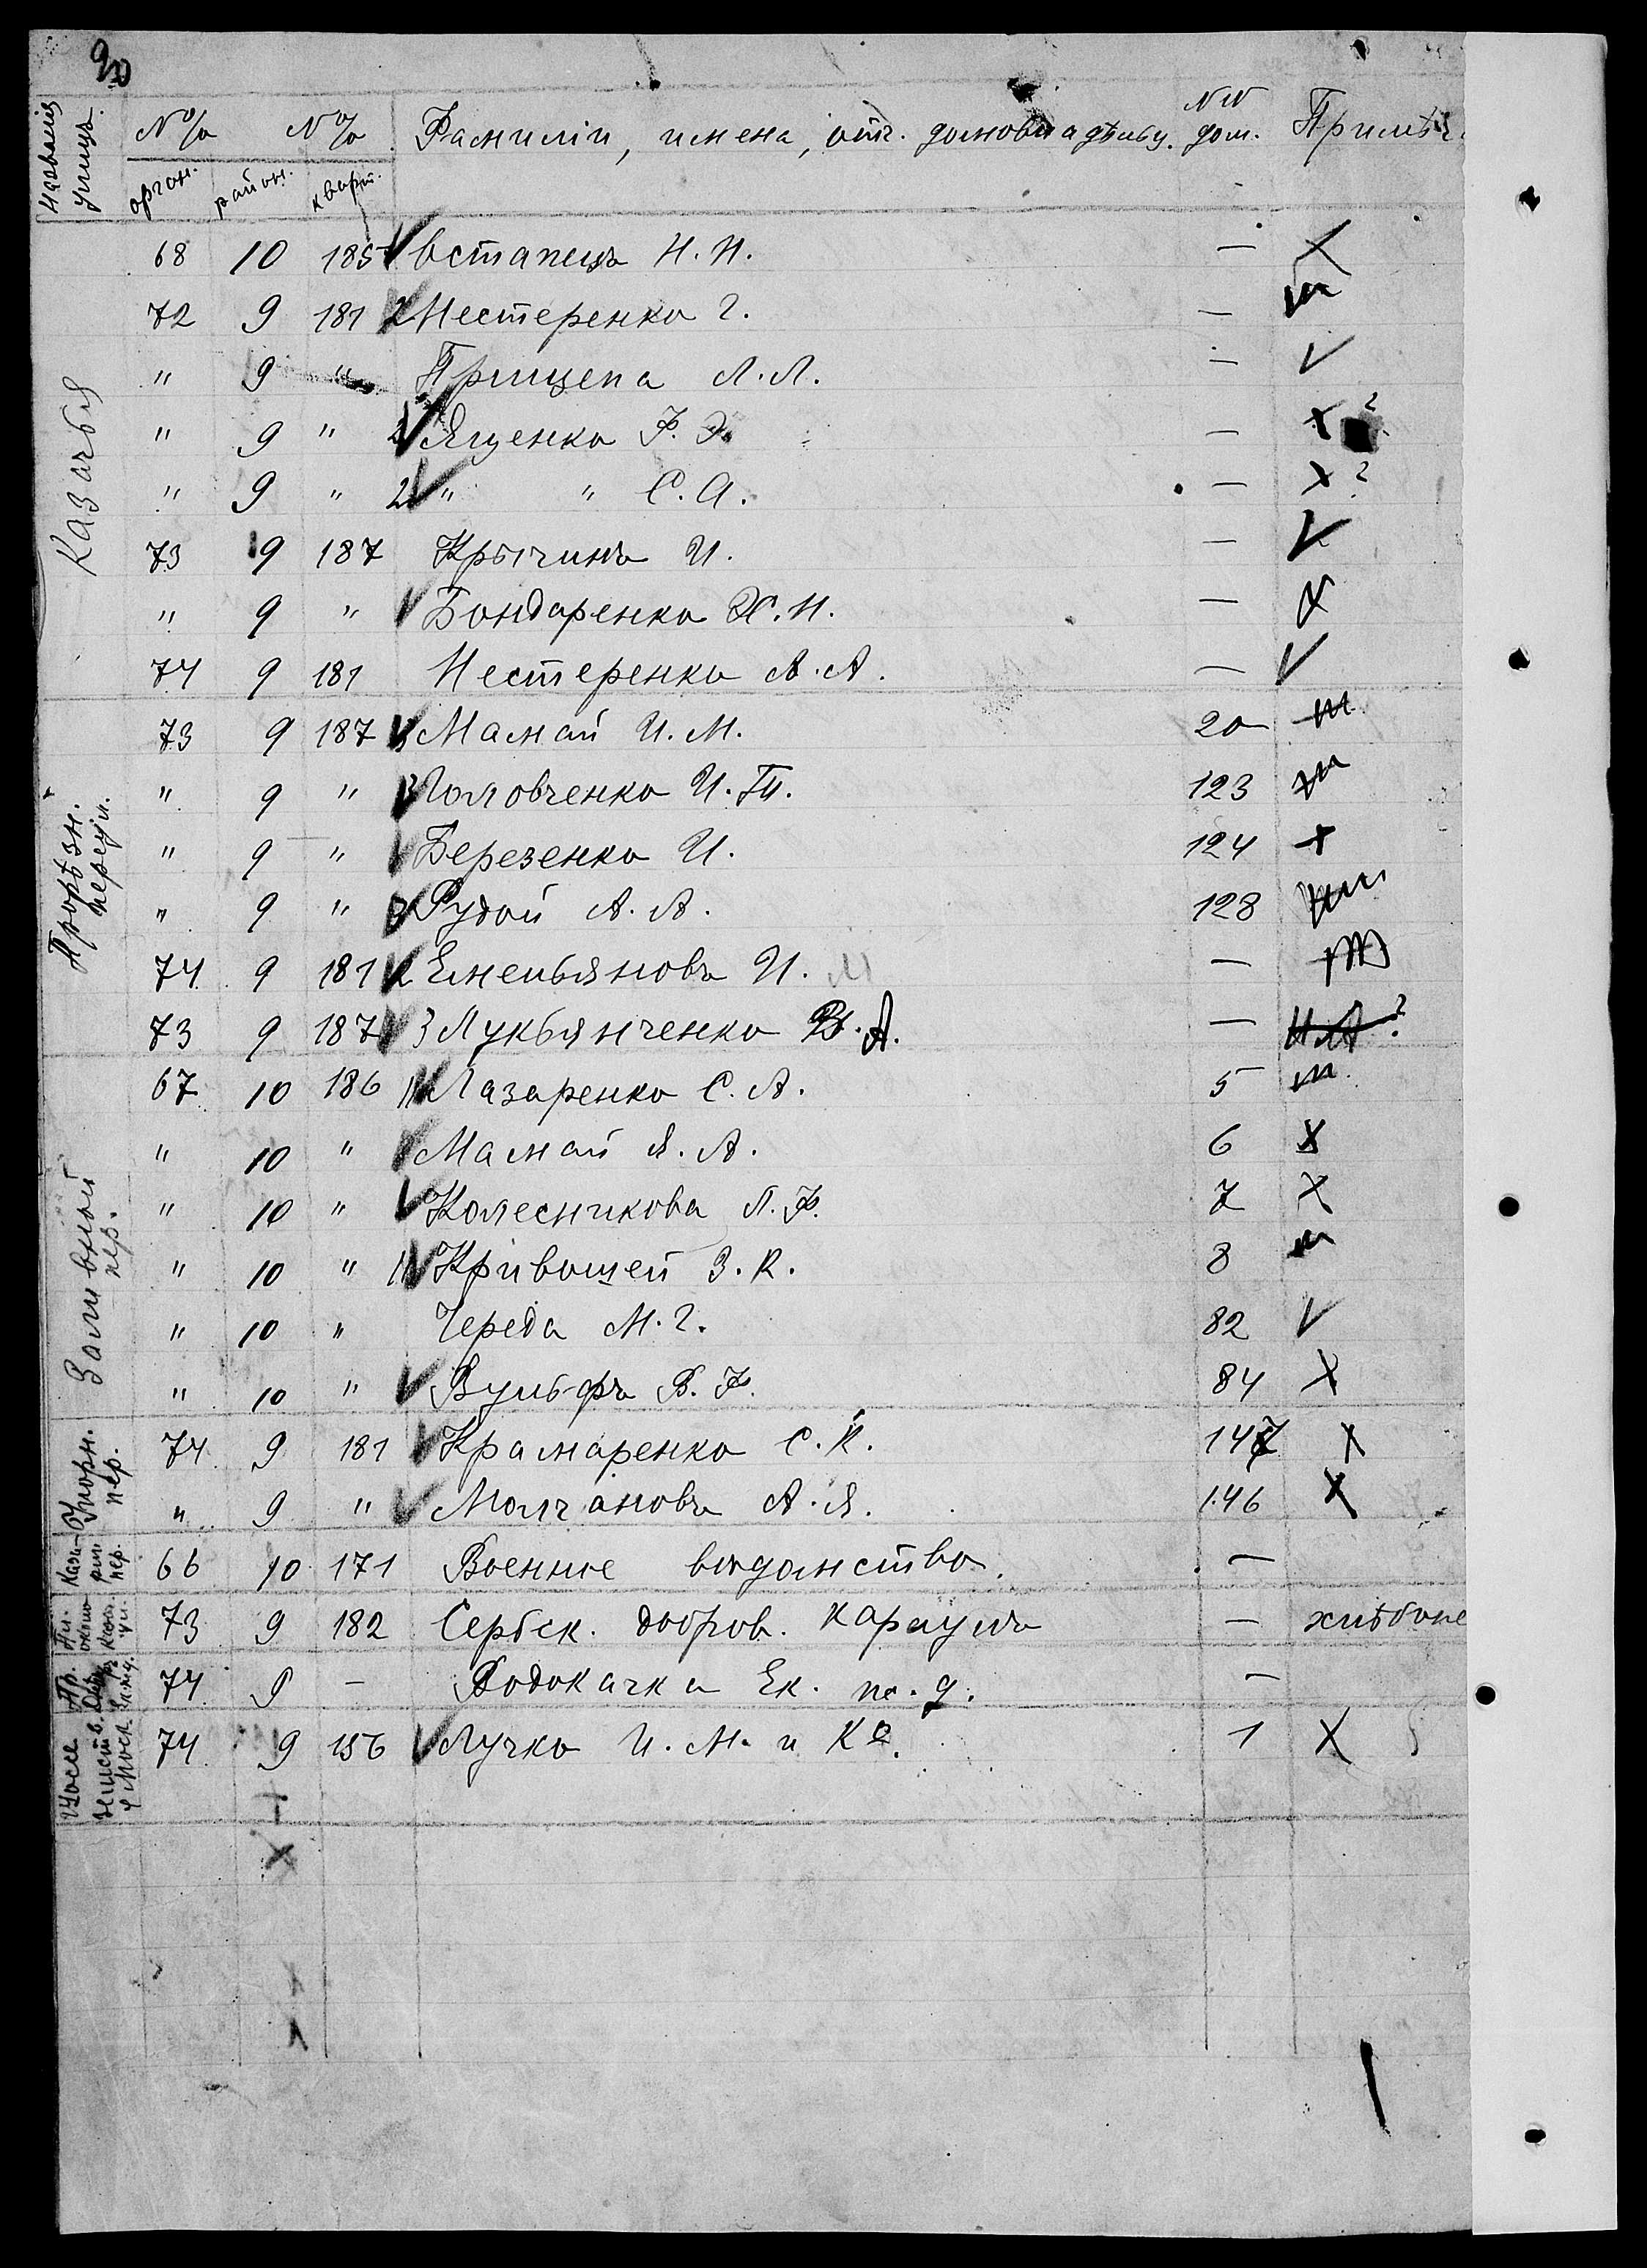 90
Названія улицъ. №№ орган. район. №№ кварт. Фамиліи, имена, отч. домовладѣльц. NN дом. Примѣч.
Казачья
68 10 185 Встапецъ Н. Н. — X
72 9 181 2 Нестеренко Г. — m
" 9 " Прищепа Л. Л. — V
" 9 " 2 Яценко Ф. Э. — X ?
" 9 " 2 " " С. А. — X ?
73 9 187 Крычинъ И. — V
" 9 " Бондаренко Х. Н. — X
74 9 181 Нестеренко А. А. — V
Прорѣзн. переул.
73 9 187 3 Мамай И. М. 20 m
" 9 " 3 Головченко И. П. 123 m
" 9 " Березенко И. 124 X
" 9 " 3 Рудой А. А. 128
74 9 181 2 Емельяновъ И. —
73 9 187 3 Лукьянченко В. А. — ?
Заливной пер.
67 10 186 Лазаренко С. А. 5 m
" 10 " Мамай Я. А. 6 X
" 10 " Колесникова Л. Ф. 7 X
" 10 " Кривошей З. К. 8 m
" 10 " Череда М. Г. 82 V
" 10 " Вульфъ В. Ф. 84 X
Упорн. пер.
74 9 181 Крамаренко С. К. 147 X
" 9 " Молчановъ А. Я. 146 X
пер.
66 10 171 Военное вѣдомство. —
73 9 182 Сербск. добров. Караулъ — хлѣбопе
74 9 — Водокачка Ек. ж. д. —
74 9 156 Лучко И. М. и К⁰. 1 X